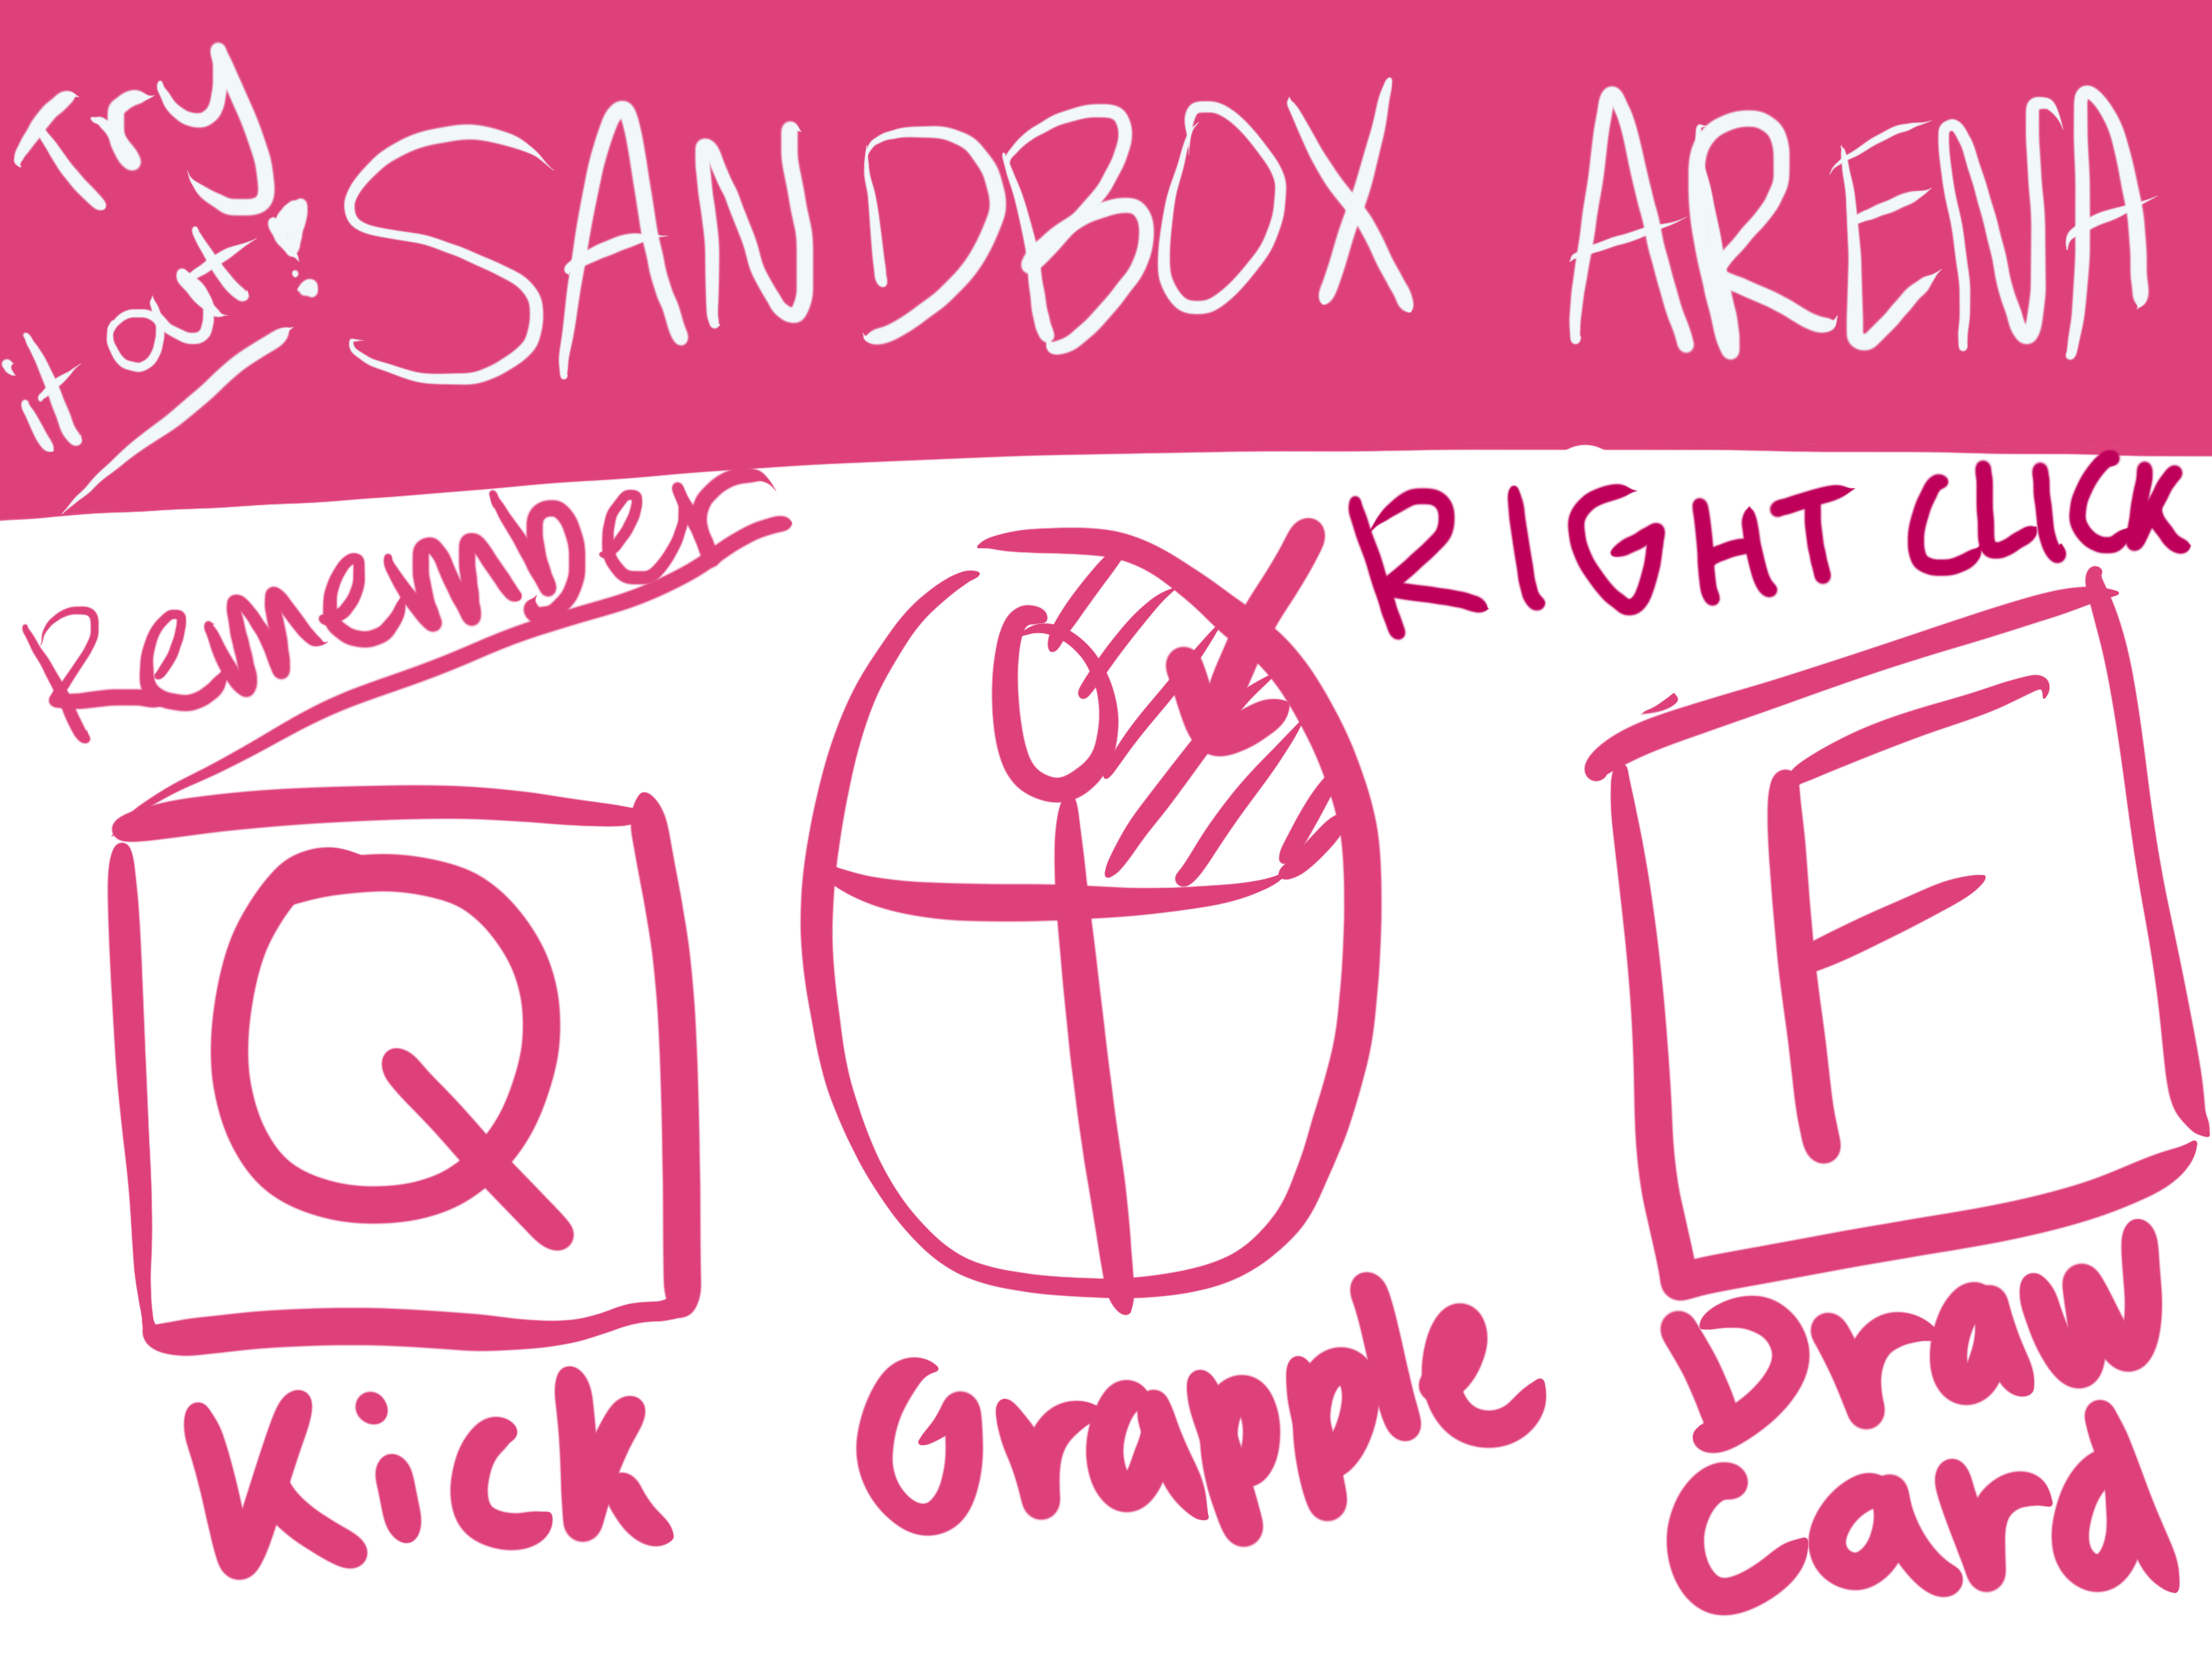 Try
it out!
SANDBOX ARENA
Remember
RIGHT CLICK
Q
E
Kick
Grapple
Draw
Card